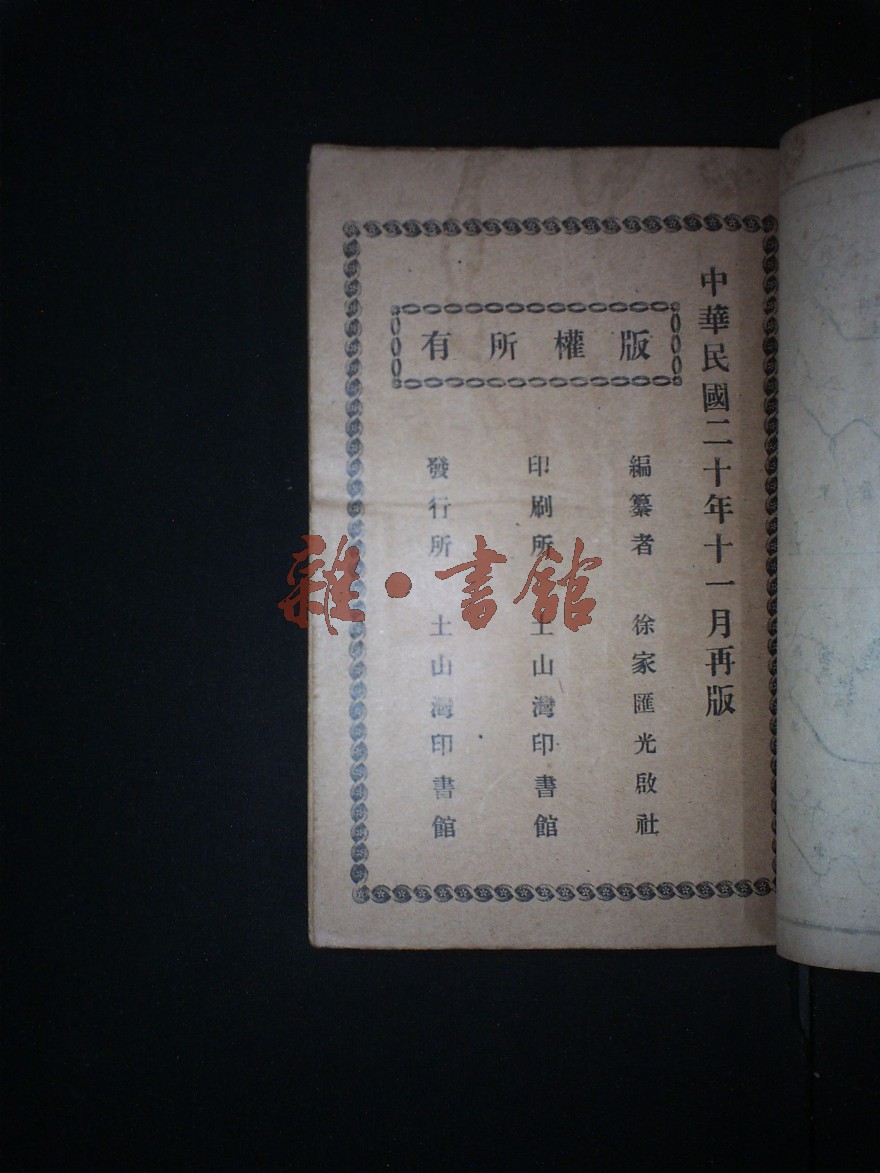 中華民國二十年十一月再版
版權所有
編纂者 徐家匯光啟社
印刷所 土山灣印書館
發行所 土山灣印書館
雜·書館